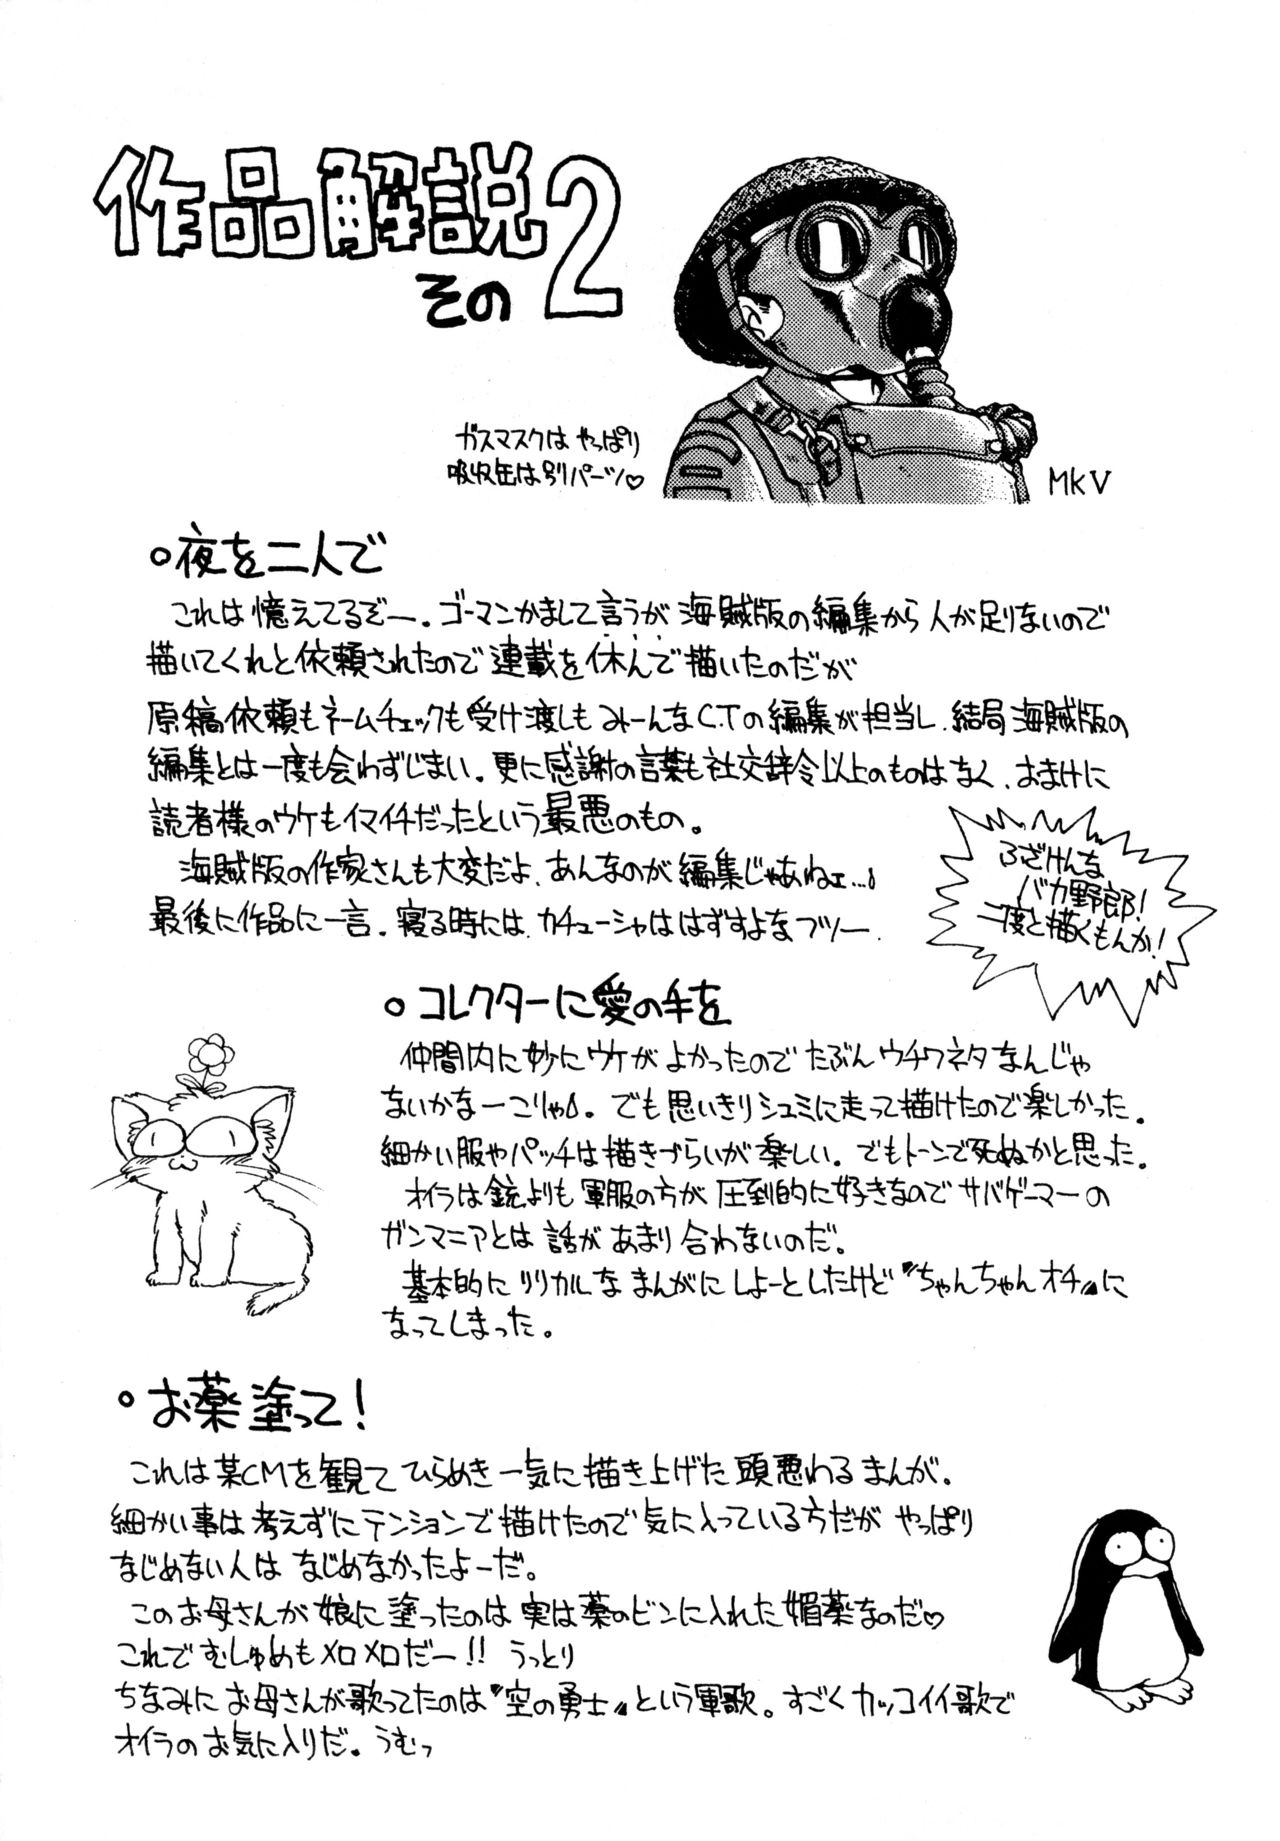 作品解説
その2
ガスマスクは やっぱり
吸収缶は別パーツ♡
MKV
○夜を二人で
これは憶えてるぞー。ゴーマンかまして言うが海賊版の編集から人が足りないので
描いてくれと依頼されたので連載を休んで描いたのだが
原稿依頼もネームチェックも受け渡しもみーんなC.Tの編集が担当し、結局海賊版の
編集とは一度も会わずじまい。更に感謝の言葉も社交辞令以上のものはなく、おまけに
読者様のウケもイマイチだったという最悪のもの。
海賊版の作家さんも大変だよ、あんなのが編集じゃあねェ…♪
最後に作品に一言。寝る時には、カチューシャははずすよなフツー。
ふざけんな
バカ野郎!
二度と描くもんか!
○コレクターに愛の手を
仲間内に妙にウケがよかったのでたぶんウチワネタなんじゃ
ないかなーこりゃ♪。でも思いきりシュミに走って描けたので楽しかった。
細かい服やパッチは描きづらいが楽しい。でもトーンで死ぬかと思った。
オイラは銃よりも軍服の方が圧倒的に好きなのでサバゲーマーの
ガンマニアとは話があまり合わないのだ。
基本的にリリカルなまんがにしよーとしたけど〝ちゃんちゃんオチ〟に
なってしまった。
○お薬塗って!
これは某CMを観てひらめき一気に描き上げた頭悪わるまんが。
細かい事は考えずにテンションで描けたので気に入っている方だがやっぱり
なじめない人はなじめなかったよーだ。
このお母さんが娘に塗ったのは実は薬のビンに入れた媚薬なのだ♡
これでむしゅめもメロメロだー!! うっとり
ちなみにお母さんが歌ってたのは〝空の勇士〟という軍歌。すごくカッコイイ歌で
オイラのお気に入りだ。うむっ